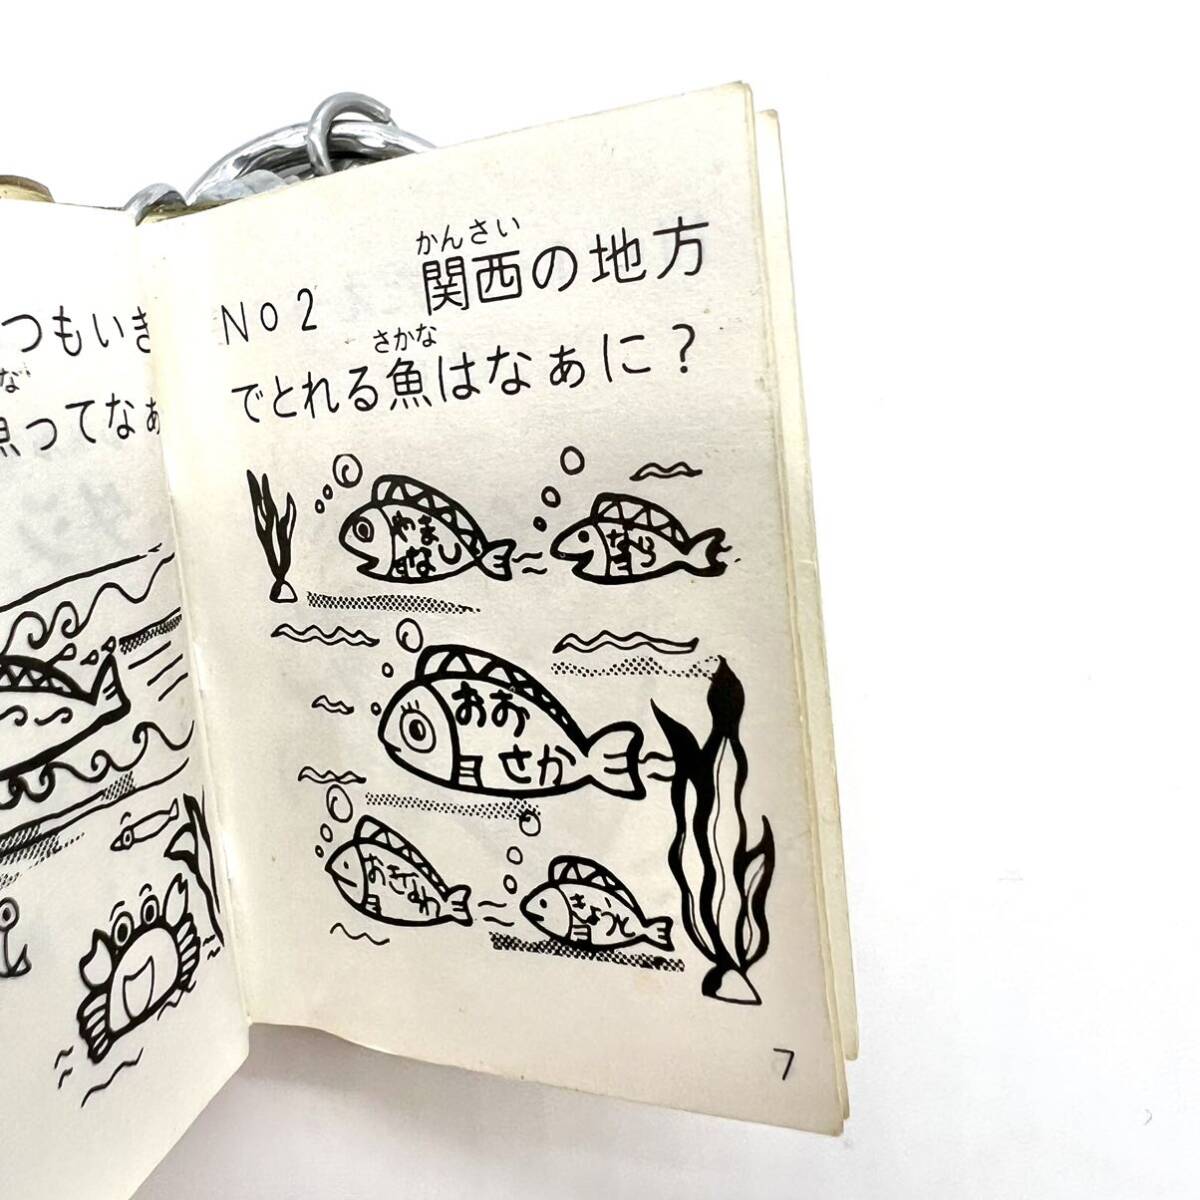 つもいき
な
魚ってなぁ
かんさい
No2 関西の地方
さかな
でとれる魚はなぁに？
やま
なし
なら
おお
さか
おきなわ
きょうと
7